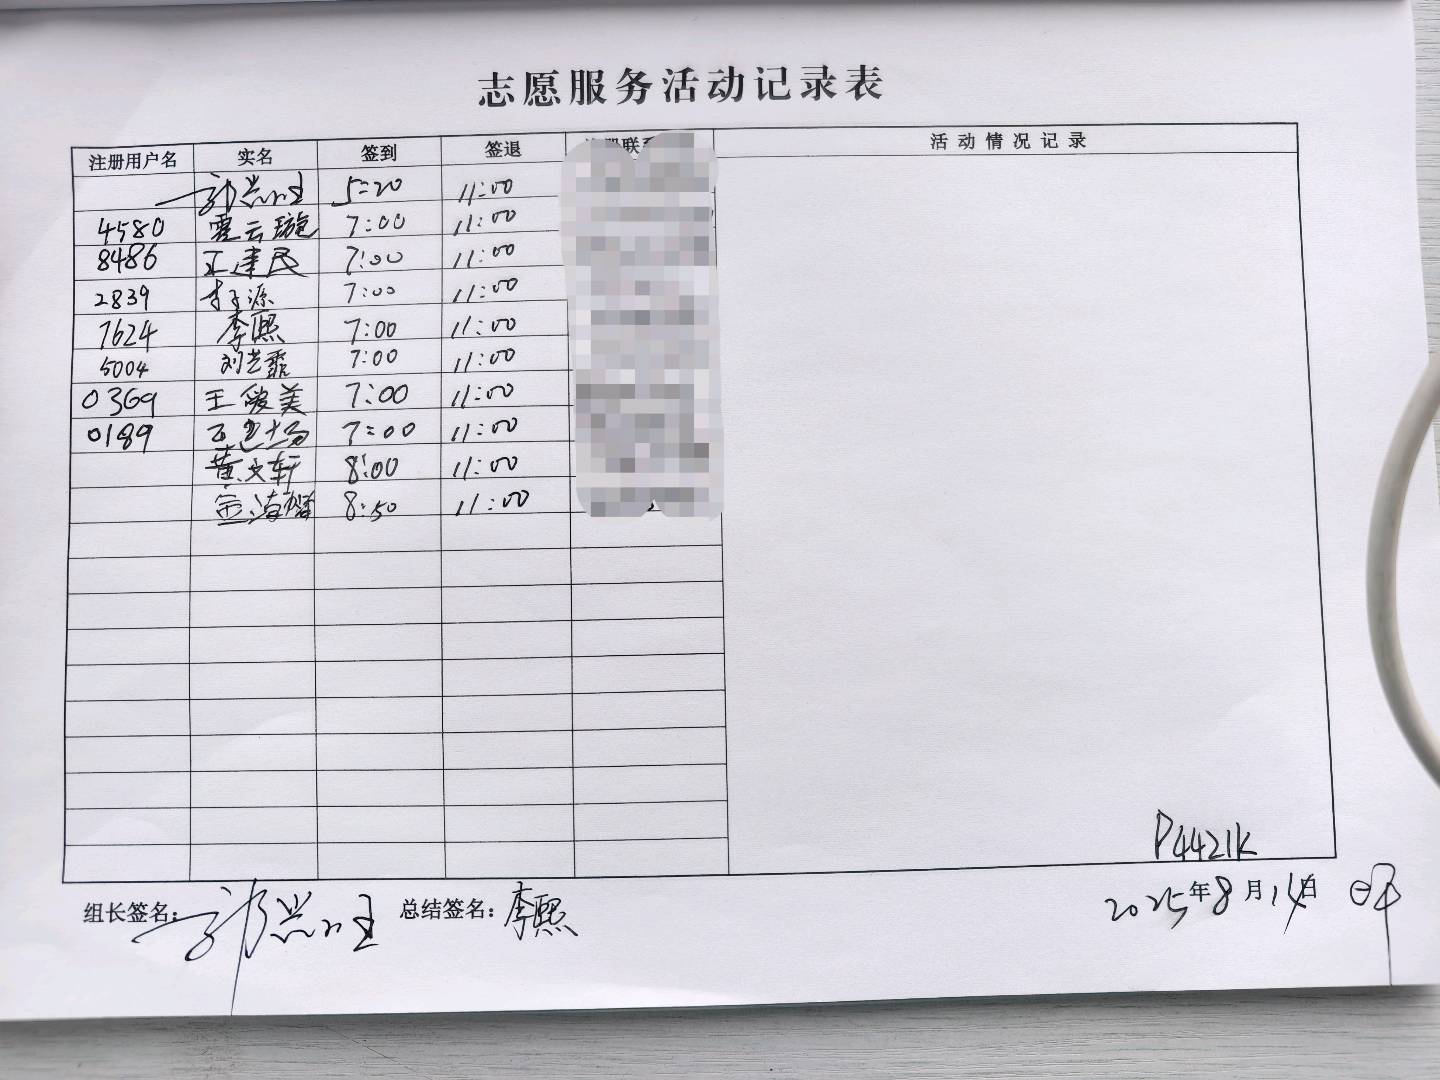 志愿服务活动记录表
注册用户名 实名 签到 签退 联系 活动情况记录
5:20 11:00
4580 云璇 7:00 11:00
8486 王建民 7:00 11:00
2839 李子源 7:00 11:00
7624 李熙 7:00 11:00
5004 刘艺霏 7:00 11:00
0369 王爱美 7:00 11:00
0189 7:00 11:00
黄文轩 8:00 11:00
金海 8:50 11:00
P4421K
组长签名: 总结签名: 李熙
2025年8月14日